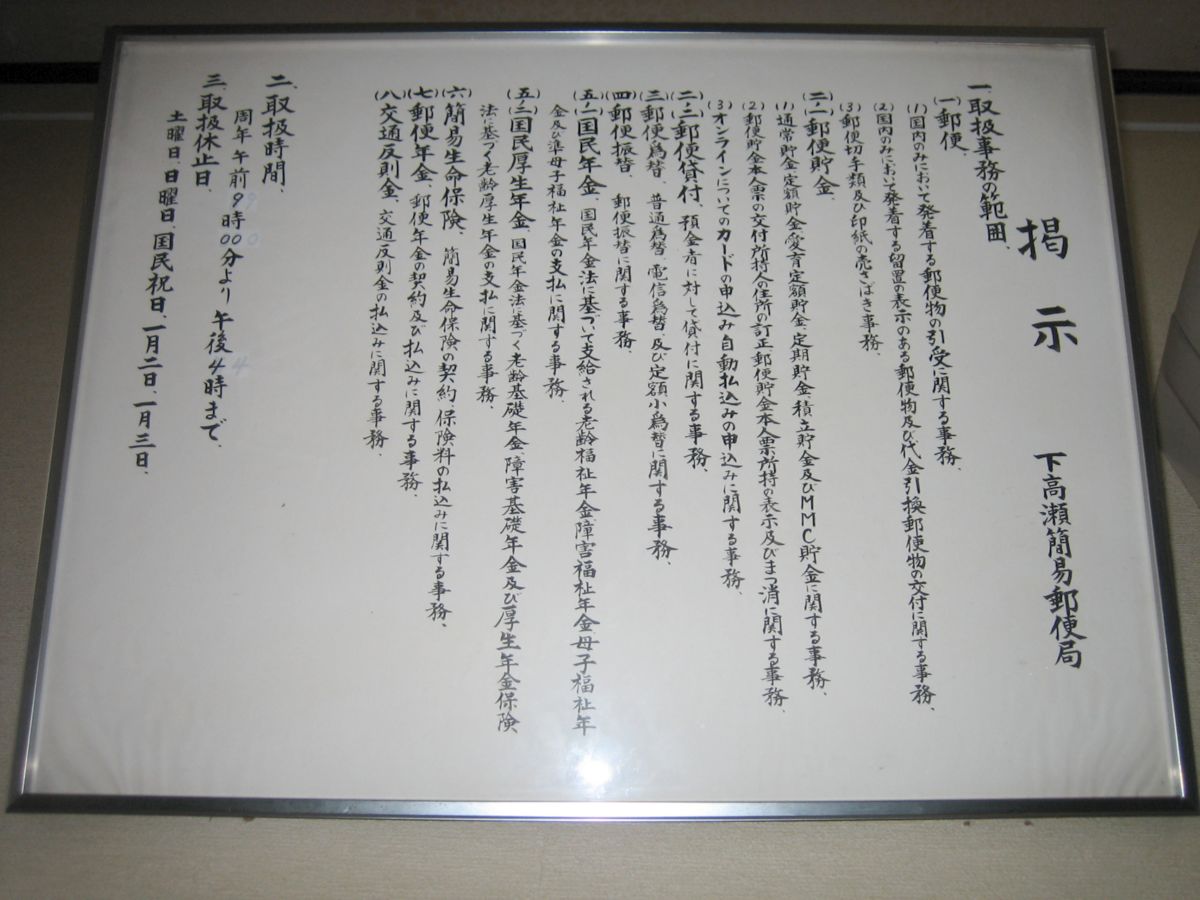 掲示
下高瀬簡易郵便局
一、取扱事務の範囲、
(一)郵便、
(1)国内のみにおいて発着する郵便物の引受に関する事務、
(2)国内のみにおいて発着する留置の表示のある郵便物及び代金引換郵便物の交付に関する事務、
(3)郵便切手類及び印紙の売さばき事務、
(二ノ一)郵便貯金、
(1)通常貯金、定額貯金、愛育定額貯金、定期貯金、積立貯金及びMMC貯金に関する事務、
(2)郵便貯金本人票の交付所持人の住所の訂正郵便貯金本人票所持の表示及びまつ消に関する事務、
(3)オンラインについてのカードの申込み自動払込みの申込みに関する事務、
(二ノ二)郵便貸付、預金者に対して貸付に関する事務、
(三)郵便為替、普通為替、電信為替、及び定額小為替に関する事務、
(四)郵便振替、郵便振替に関する事務、
(五ノ一)国民年金、国民年金法に基づいて支給される老齢福祉年金障害福祉年金母子福祉年
金及び準母子福祉年金の支払に関する事務、
(五ノ二)国民厚生年金、国民年金法に基づく老齢基礎年金、障害基礎年金及び厚生年金保険
法に基づく老齢厚生年金の支払に関する事務、
(六)簡易生命保険、簡易生命保険の契約保険料の払込みに関する事務、
(七)郵便年金、郵便年金の契約及び払込みに関する事務、
(八)交通反則金、交通反則金の払込みに関する事務、
二、取扱時間、
周年午前9時00分より午後4時まで、
三、取扱休止日、
土曜日、日曜日、国民祝日、一月二日、一月三日、